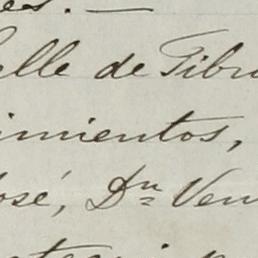 es. —
alle de Tibu
imientos,
José, Dn Ven